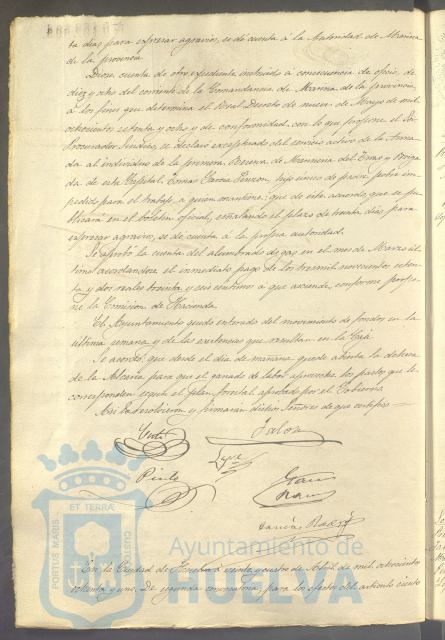 ta dias para expresar agravios, se dé cuenta á la Autoridad de Marina
de la provincia
Diose cuenta de otro expediente instruido á consecuencia de oficio, de
diez y ocho del corriente de la Comandancia de Marina de la provincia,
á los fines que determina el Real Decreto de nueve de Mayo de mil
ochocientos setenta y ocho y de conformidad con lo que propone el Sor
Procurador Síndico, se declaró exceptuado del servicio activo de la Arma-
da al individuo de la primera Reserva de Marinería del Trozo y Briga
da de esta Capital, Tomás Garcia Pinzon, hijo único de padre pobre im-
pedido para el trabajo á quien mantiene; que de este acuerdo, que se pu-
blicará en el boletin oficial, señalando el plazo de treinta dias para
expresar agravios, se dé cuenta á la propia autoridad.
Se aprobó la cuenta del alumbrado de gas en el mes de Marzo úl-
timo acordandose el inmediato pago de los tres mil novecientos seten-
ta y dos reales treinta y seis centimos á que asciende, conforme propo-
ne la Comision de Hacienda
El Ayuntamiento quedó enterado del movimiento de fondos en la
ultima semana y de las existencias que resultan en la Caja
Se acordó, que desde el dia de mañana quede abierta la dehesa
de la Alcería para que el ganado de labor aproveche los pastos, que le
corresponden segun el plan forestal, aprobado por el Gobierno
Asi lo acordaron y firmaran dichos Señores de que certifico =
Pinto
Garcia Ramos
En la Ciudad de Huelva á veinte y cuatro de Abril de mil ochocientos
ochenta y uno. De segunda convocatoria, para los efectos del articulo ciento
ET TERRÆ
PORTUS MARIS
CUSTODIA
Ayuntamiento de
HUELVA